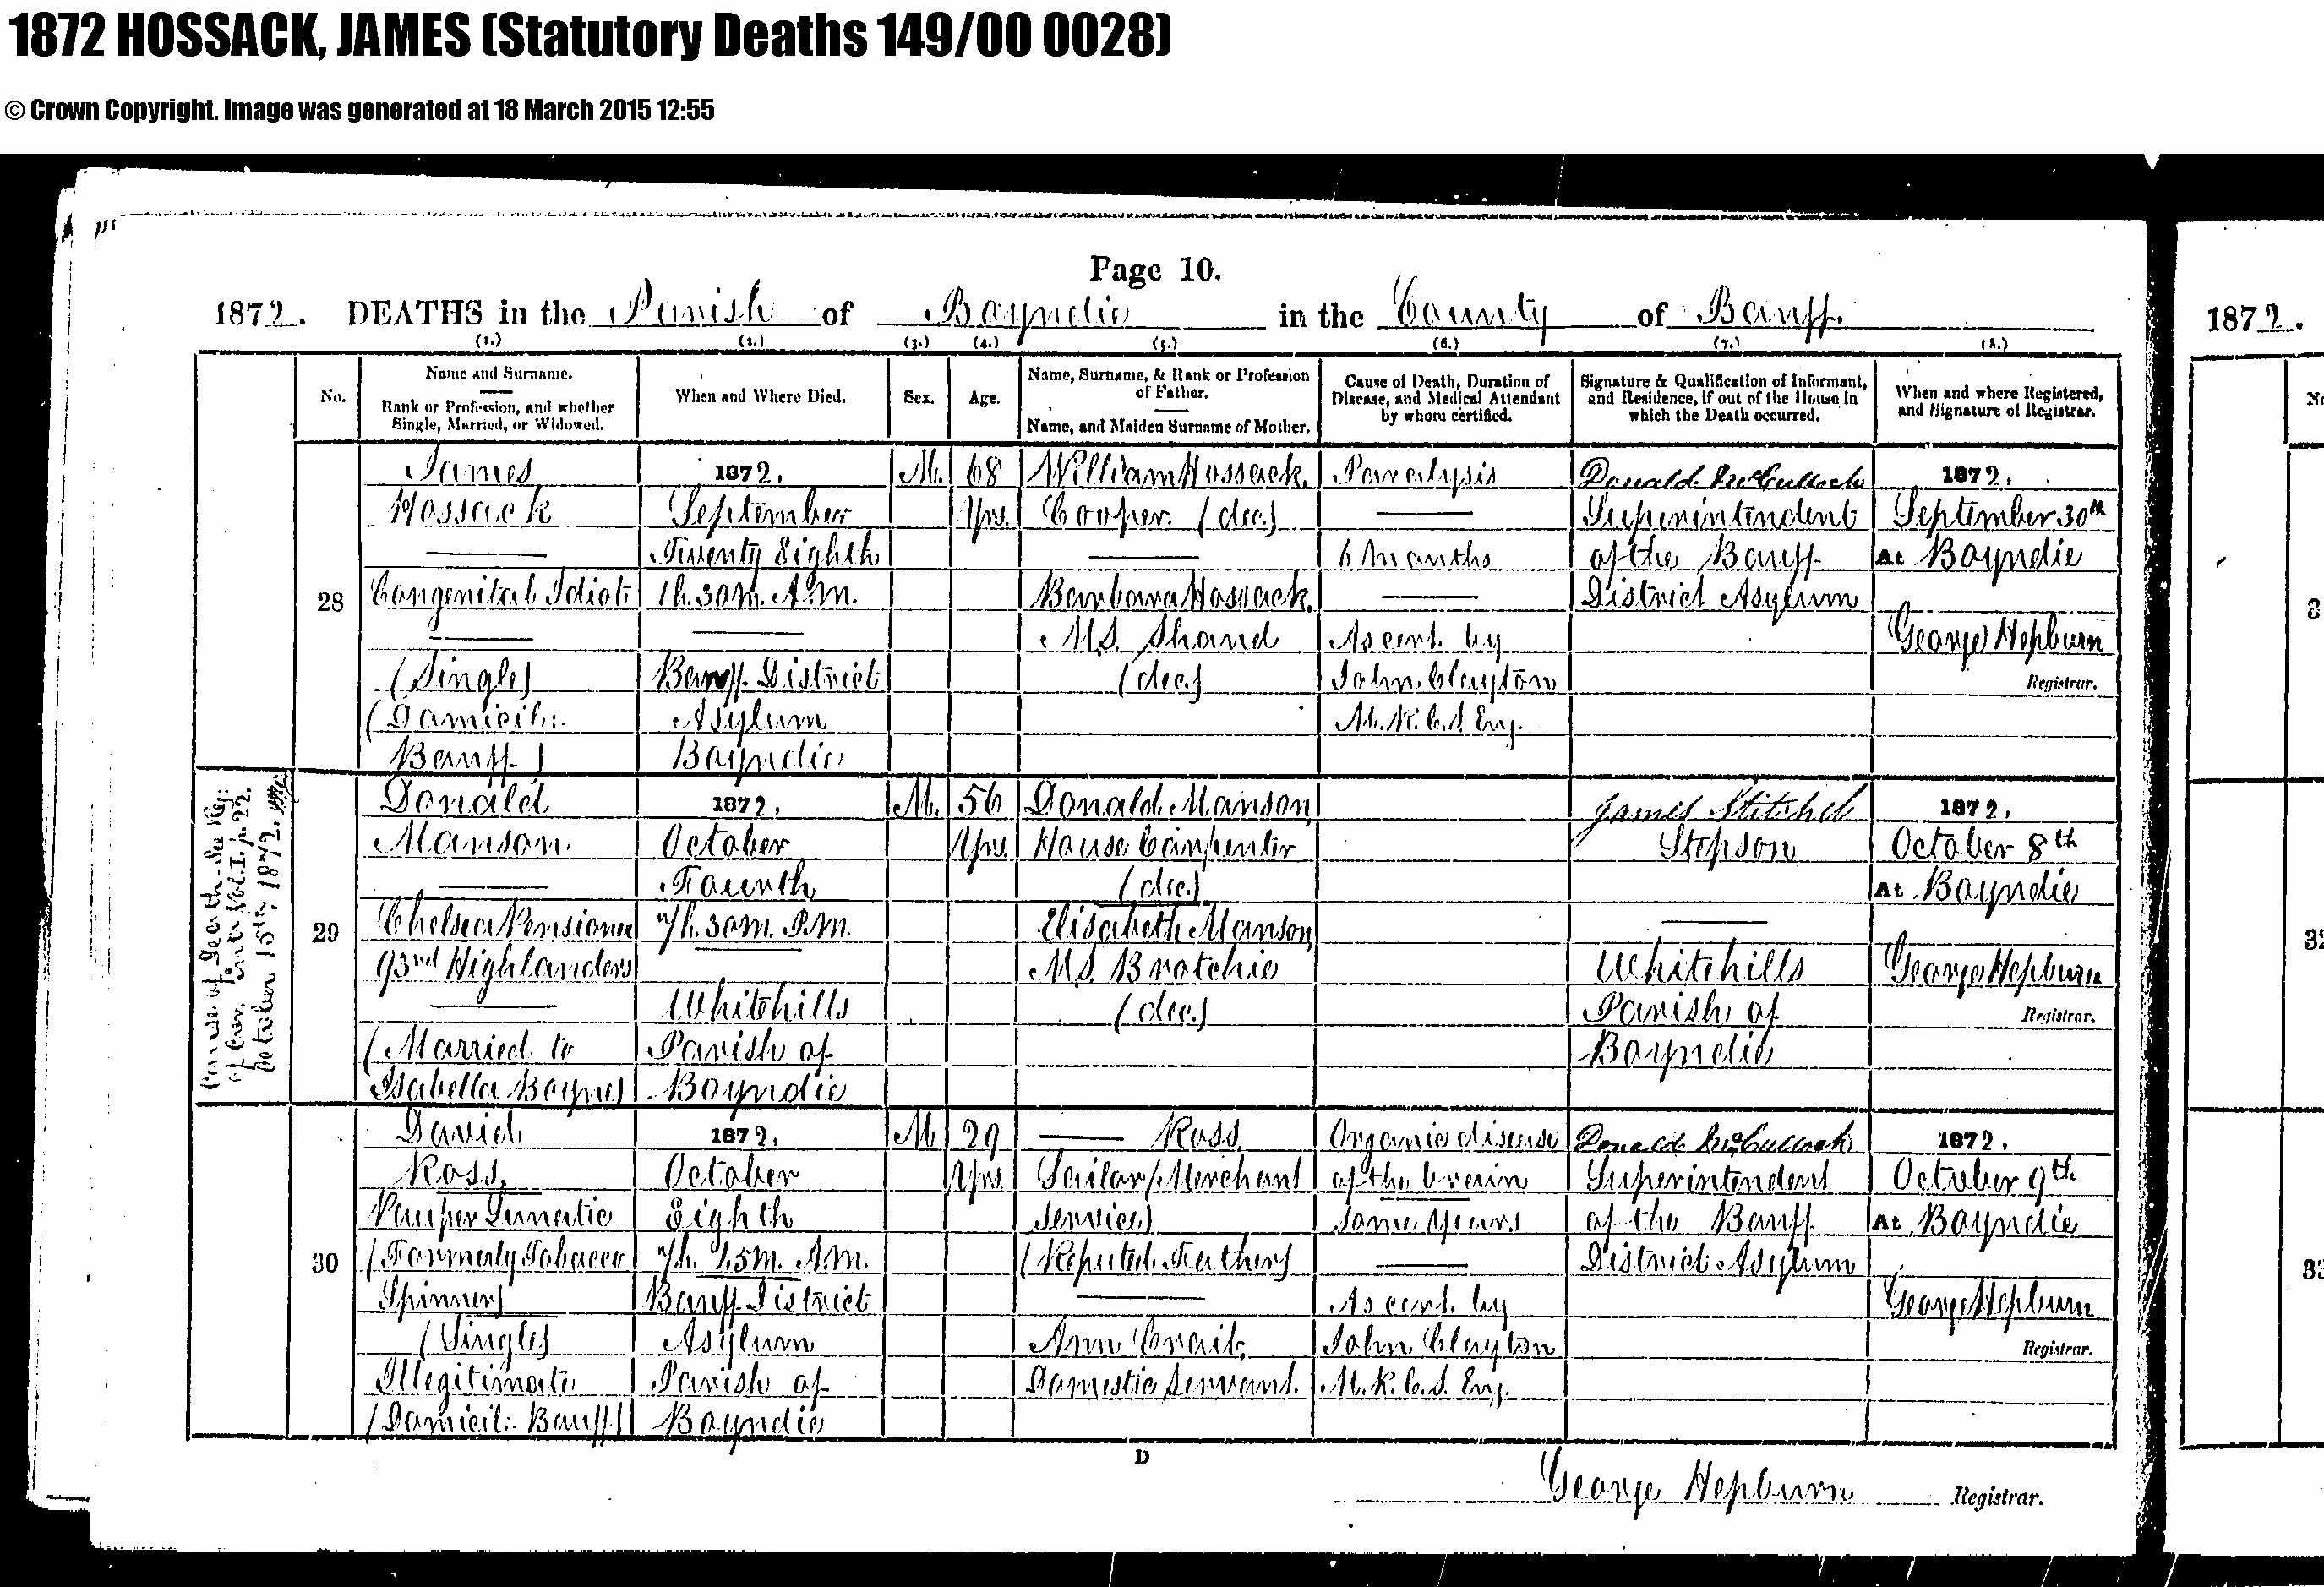 1872 HOSSACK, JAMES (Statutory Deaths 149/00 0028)
© Crown Copyright. Image was generated at 18 March 2015 12:55
Page 10.
1872. DEATHS in the Parish of Boyndie in the County of Banff.
1872.
(1.) (2.) (3.) (4.) (5.) (6.) (7.) (8.)
No.
Name and Surname.
Rank or Profession, and whether
Single, Married, or Widowed.
When and Where Died.
Sex.
Age.
Name, Surname, & Rank or Profession
of Father.
Name, and Maiden Surname of Mother.
Cause of Death, Duration of
Disease, and Medical Attendant
by whom certified.
Signature & Qualification of Informant,
and Residence, if out of the House in
which the Death occurred.
When and where Registered,
and Signature of Registrar.
28
James
Hossack
Congenital Idiot
(Single)
(Domicil:
Banff)
1872.
September
Twenty Eighth
1h. 30m. A.M.
Banff District
Asylum
Boyndie
M.
68
Yrs.
William Hossack
Cooper (dec.)
Barbara Hossack
M.S. Shand
(dec.)
Paralysis
6 Months
As cert. by
John Clayton
M.R.C.S. Eng.
Donald McCulloch
Superintendent
of the Banff
District Asylum
1872.
September 30th
At Boyndie
George Hepburn
Registrar.
Cause of Death - See Reg:
of Cor. Ents Vol. I. p. 22.
October 15th, 1872.
29
Donald
Manson
Chelsea Pensioner
93rd Highlanders
(Married to
Isabella Bayne)
1872.
October
Fourth
7h. 30m. P.M.
Whitehills
Parish of
Boyndie
M.
56
Yrs.
Donald Manson
House Carpenter
(dec.)
Elisabeth Manson
M.S. Bratchie
(dec.)
James Stitchel
Stepson
Whitehills
Parish of
Boyndie
1872.
October 8th
At Boyndie
George Hepburn
Registrar.
30
David
Ross
Pauper Lunatic
(Formerly Tobacco
Spinner)
(Single)
Illegitimate
(Domicil: Banff)
1872.
October
Eighth
Banff District
Asylum
Parish of
Boyndie
M
29
Yrs.
Ross,
Sailor (Merchant
service)
(Reputed Father)
Ann Crait,
Domestic Servant.
Organic disease
of the brain
some years
As cert. by
John Clayton
M.R.C.S. Eng.
Donald McCulloch
Superintendent
of the Banff
District Asylum
1872.
October 9th
At Boyndie
George Hepburn
Registrar.
D
George Hepburn Registrar.